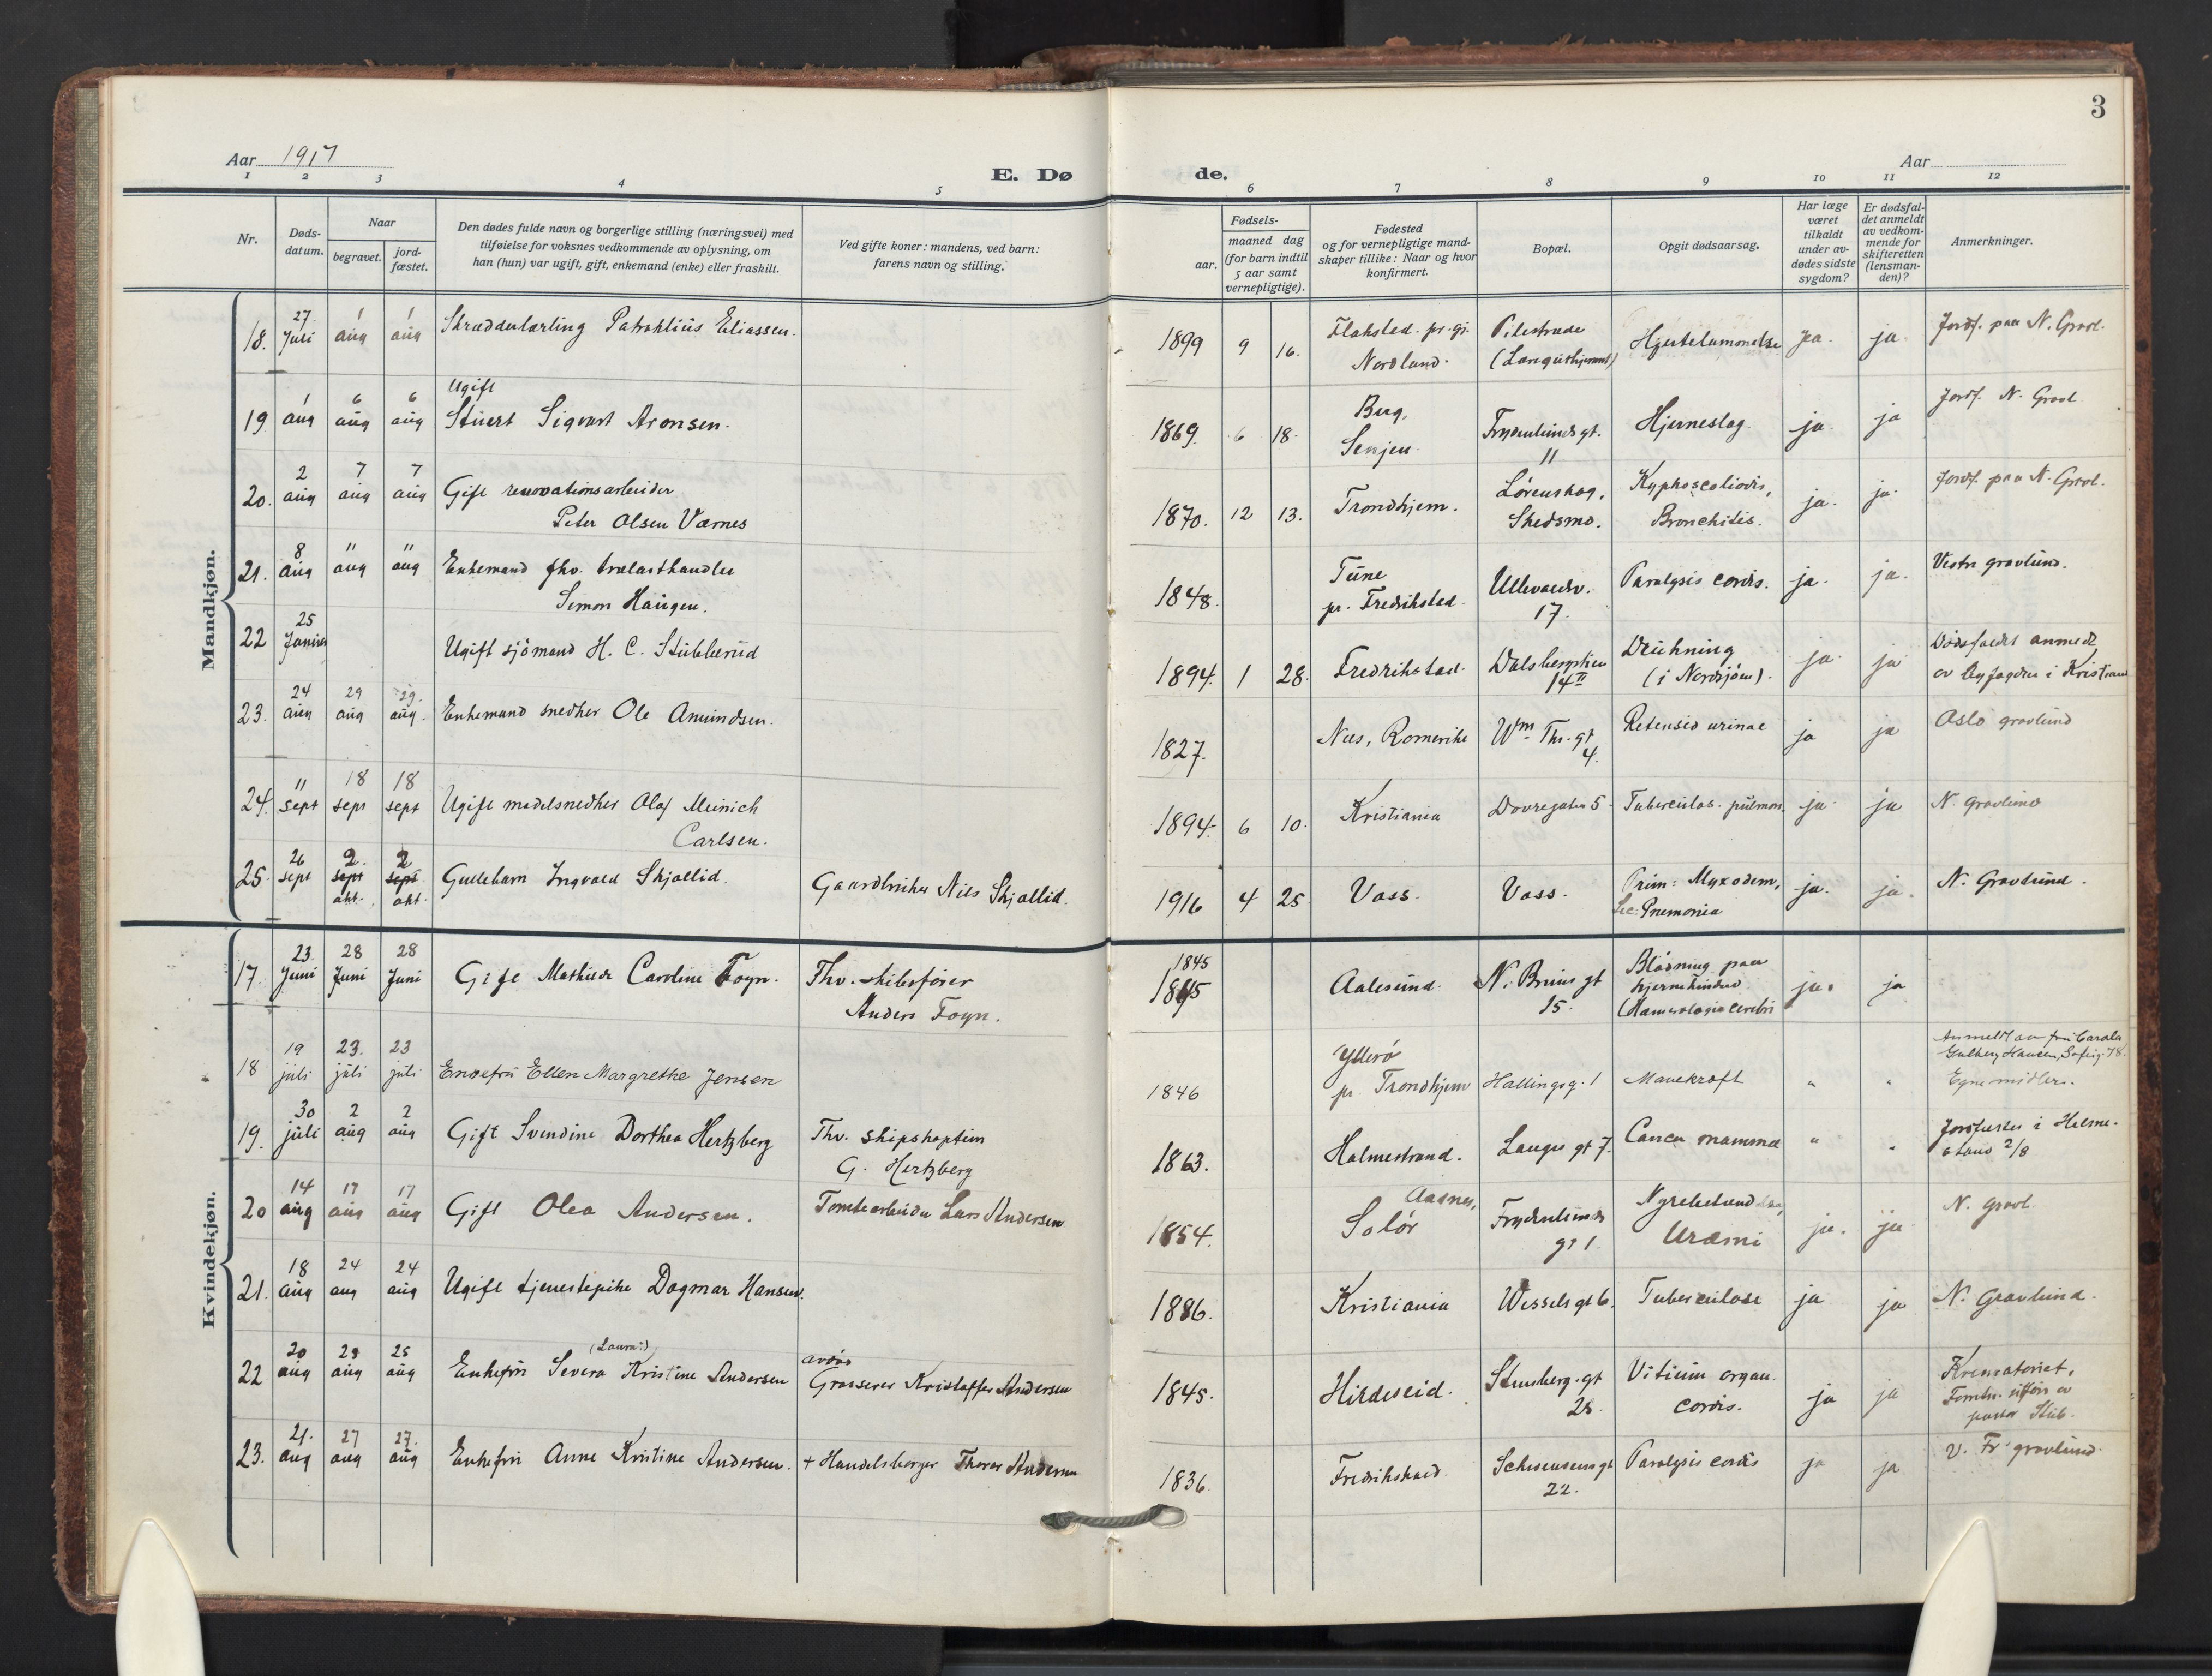 3
Aar 1917
Aar
E. Dø de.
1 2 3 4 5 6 7 8 9 10 11 12
Nr.
Døds-
datum.
Naar
begravet.
jord-
fæstet.
Den dødes fulde navn og borgerlige stilling (næringsvei) med
tilføielse for voksnes vedkommende av oplysning, om
han (hun) var ugift, gift, enkemand (enke) eller fraskilt.
Ved gifte koner: mandens, ved barn:
farens navn og stilling.
Fødsels-
aar.
maaned dag
(for barn indtil
5 aar samt
vernepligtige).
Fødested
og for vernepligtige mand-
skaper tillike: Naar og hvor
konfirmert.
Bopæl.
Opgit dødsaarsag.
Har læge
været
tilkaldt
under av-
dødes sidste
sygdom?
Er dødsfal-
det anmeldt
av vedkom-
mende for
skifteretten
(lensman-
den)?
Anmerkninger.
Mandkjøn.
27 1 1
18. Juli aug aug Skrædderlærling Patroklius Eliassen. 1899 9 16. Flaksted pr.gj. Nordland. Pilestræde Hjertelammelse Jaa. ja. Jordf. paa N. Gravl.
Ugift
1 6 6
19 aug aug aug Stuert Sigvart Aronsen. 1869. 6 18. Berg, Senjen. Frydenlunds gt. 11 Hjerneslag. ja. ja Jordf. N. Gravl
2 7 7
20. aug aug aug Gift renovationsarbeider
Peter Olsen Værnes 1870. 12 13. Trondhjem. Lørenskog, Skedsmo. Kyphoscoliosis, Bronchitis. ja. ja. Jordf. paa N. Gravl.
8 11 11
21. aug aug aug Enkemand fhv. trælasthandler
Simon Haugen. 1848. Tune pr. Fredrikstad. Ullevaalsv. 17. Paralysis cordis. ja. ja. Vestre gravlund.
25
22 Ugift sjömand H. C. Stubberud 1894. 1 28. Fredrikstad. Dalsbergstien 14 II Drukning (i Nordsjöen). ja. ja Dødsfaldet anmeldt
av byfogden i Kristiania
24 29 29.
23. aug aug aug. Enkemand snedker Ole Amundsen. 1827. Nes, Romerike Wm. Thr. gt 4. Retensio urinae ja ja Oslo gravlund
11 18 18
24. sept sept sept Ugift modelsnedker Olaf Meinich
Carlsen. 1894. 6 10. Kristiania Dovregaten 5. Tuberculos. pulmon. ja. ja N. gravlund
26 2. 2
25. sept sept sept Guttebarn Ingvald Skjallid. Gaardbruker Nils Skjallid. 1916 4 25 Vass. Vass. Prim: Myxodem, ja. ja. N. Gravlund.
okt. okt. Sec: Pnemonia
Kvindekjøn.
23 28 28 1845
17. Juni Juni Juni Gift Mathilde Caroline Foyn. Fhv. skibsfører
Anders Foyn. 1845 Aalesund. N. Bruns gt 15. Blødning paa
ja. ja
19 23. 23
18 juli juli juli Enkefru Ellen Margrethe Jensen 1846 Ytterö pr. Trondhjem Hallingsg. 1 Mavekræft " " Anmeldt av fru Carola
Gulberg Hansen, Sofiesg. 78.
Egne midler.
30 2 2
19. juli aug aug Gift Svendine Dorthea Hertzberg Fhv. skipskaptein
G. Hertzberg 1863. Holmestrand. Langes gt 7. Cancer mamma " " Jordfæstet i Holme-
strand 2/8
14 17 17
20 aug aug aug Gift Olea Andersen. Tomtearbeider Lars Andersen 1854. Aasnes, Solör Frydenlunds gt 1. Uræmi ja. ja N. gravl.
18 24 24
21. aug aug aug Ugift tjenestepike Dagmar Hansen. 1886. Kristiania Wessels gt 6. Tuberculose ja ja N. Gravlund.
20 25 25 (Laura:)
22 aug aug aug Enkefru Severa Kristine Andersen avdøde
Grosserer Kristoffer Andersen 1845. Hitdeseid. Stensberg. gt 28. Vitium organ. cordis. ja ja Krematoriet.
21. 27 27.
23. aug aug aug Enkefru Anne Kristine Andersen. + Handelsborger Thorer Andersen 1836. Fredrikshald. Schwensens gt 22. Paralysis cordis ja ja V. Fr. gravlund.